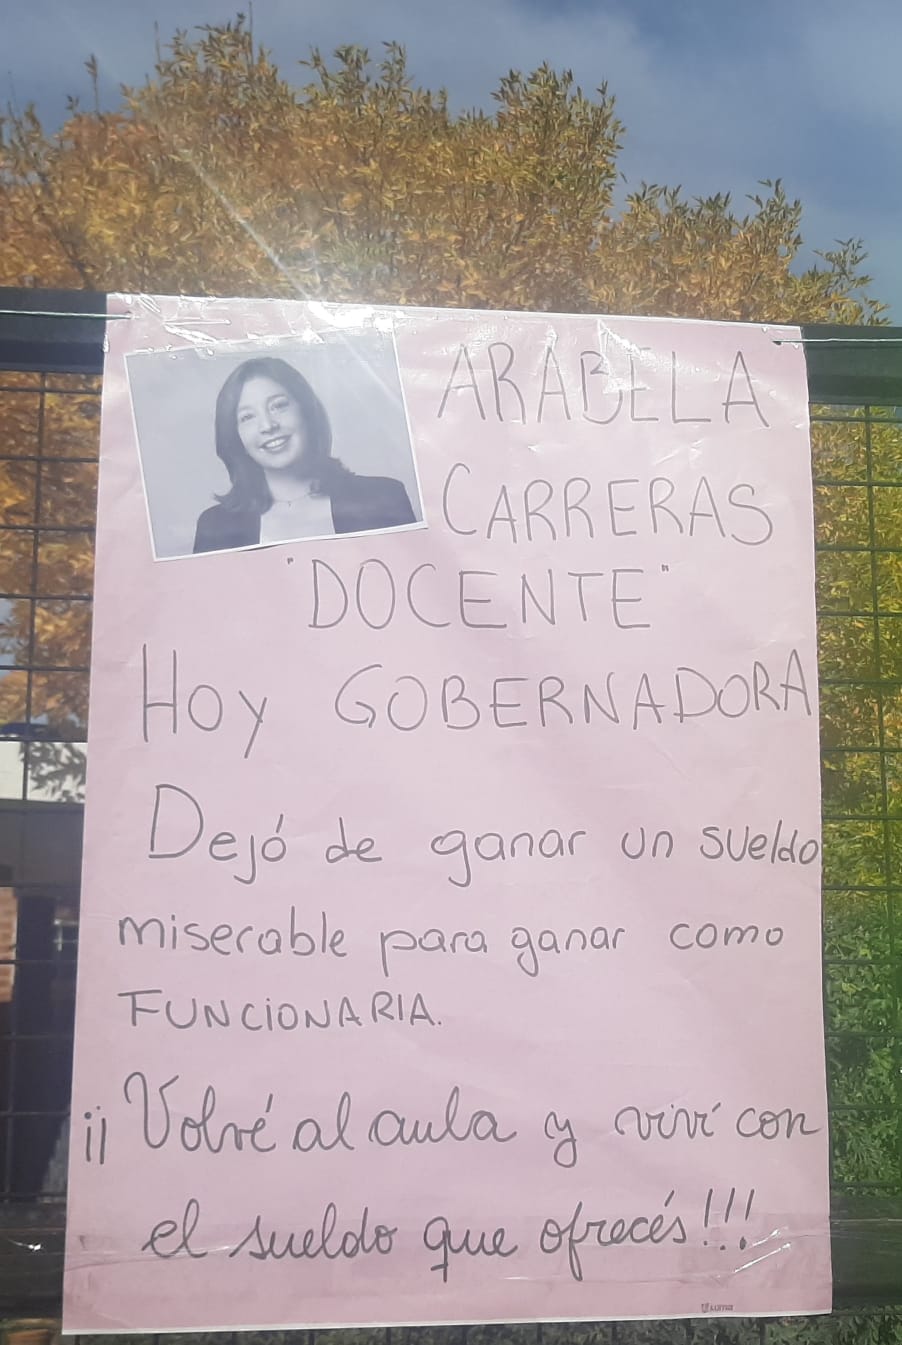 ARABELA
CARRERAS
"DOCENTE"
HOY GOBERNADORA
Dejó de ganar un sueldo
miserable para ganar como
FUNCIONARIA.
¡¡Volvé al aula y viví con
el sueldo que ofrecés!!!